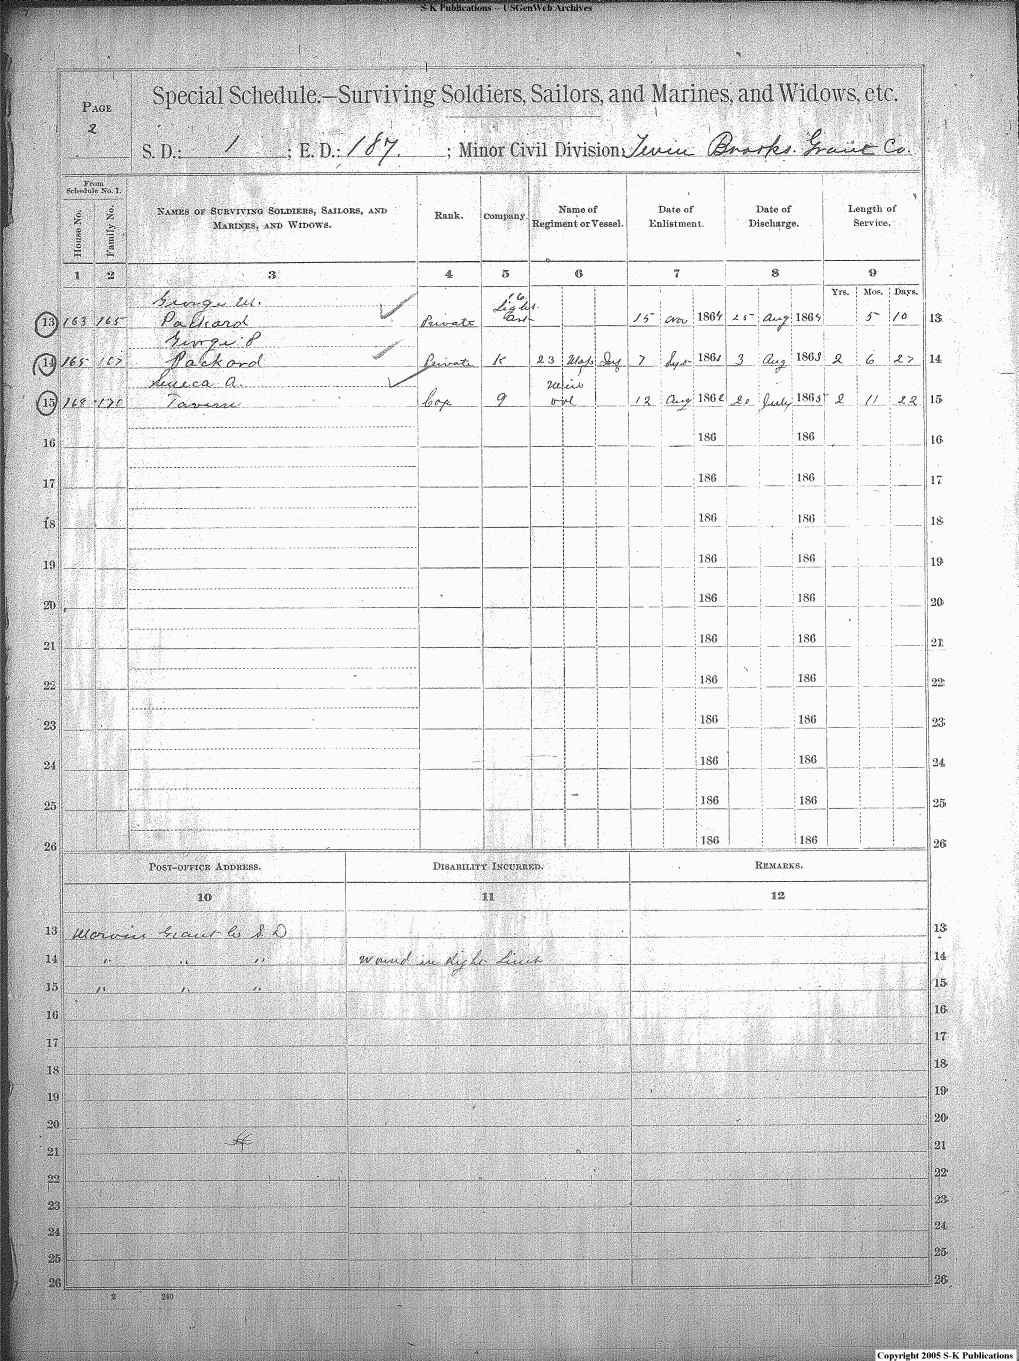 S-K Publications -- USGenWeb Archives
PAGE
2
Special Schedule.—Surviving Soldiers, Sailors, and Marines, and Widows, etc.
S. D.: 1 ; E. D.: 187. ; Minor Civil Division: Twin Brooks. Grant Co.
From Schedule No. 1.
House No. Family No. NAMES OF SURVIVING SOLDIERS, SAILORS, AND MARINES, AND WIDOWS. Rank. Company. Name of Regiment or Vessel. Date of Enlistment. Date of Discharge. Length of Service.
1 2 3 4 5 6 7 8 9
Yrs. Mos. Days.
George W. 16 Light
13 163 165 Packard Private Art 15 1864 25 Aug 186 5 10 13
George P
14 165 167 Packard Private K 23 7 186 3 Aug 186 2 6 27 14
Seneca A. vol
15 168 170 9 12 Aug 1862 20 July 1865 2 11 22 15
16 186 186 16
17 186 186 17
18 186 186 18
19 186 186 19
20 186 186 20
21 186 186 21
22 186 186 22
23 186 186 23
24 186 186 24
25 186 186 25
26 186 186 26
POST-OFFICE ADDRESS. DISABILITY INCURRED. REMARKS.
10 11 12
13 Grant Co S. D 13
14 " " " Wound in Right 14
15 " " " 15
16 16
17 17
18 18
19 19
20 20
21 21
22 22
23 23
24 24
25 25
26 26
2 240
Copyright 2005 S-K Publications